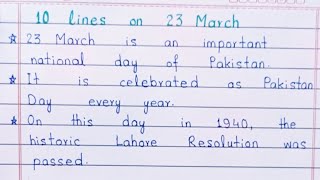 10 lines on 23 March
23 March is an important
national day of Pakistan.
It is celebrated as Pakistan
Day every year.
On this day in 1940, the
historic Lahore Resolution was
passed.